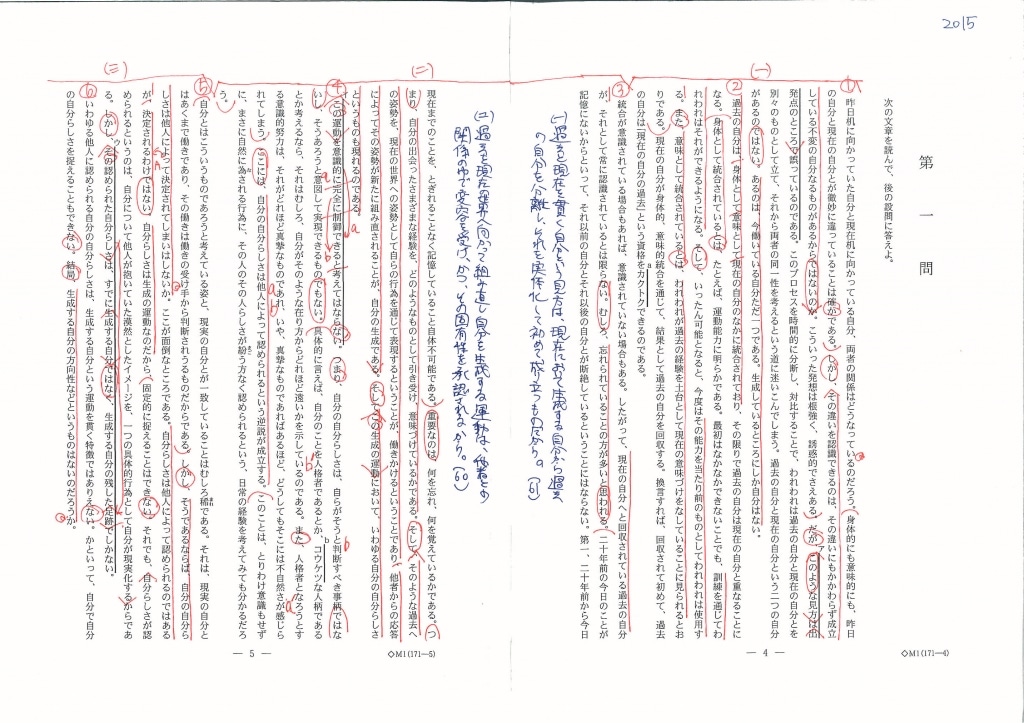 2015
第一問
次の文章を読んで、後の設問に答えよ。
(一)
① 昨日机に向かっていた自分と現在机に向かっている自分、両者の関係はどうなっているのだろう。身体的にも意味的にも、昨日
の自分と現在の自分とが微妙に違っていることは確かである。しかし、その違いを認識できるのは、その違いにもかかわらず成立
している不変の自分なるものがあるからではないのか。こういった発想は根強く、誘惑的でさえある。だが、このような見方は出
発点のところで誤っているのである。このプロセスを時間的に分断し、対比することで、われわれは過去の自分と現在の自分とを
別々のものとして立て、それから両者の同一性を考えるという道に迷いこんでしまう。過去の自分と現在の自分という二つの自分
があるのではない。あるのは、今働いている自分ただ一つである。生成しているところにしか自分はない。
② 過去の自分は、身体として意味として現在の自分のなかに統合されており、その限りで過去の自分は現在の自分と重なることに
なる。身体として統合されているとは、たとえば、運動能力に明らかである。最初はなかなかできないことでも、訓練を通じてわ
れわれはそれができるようになる。そして、いったん可能となると、今度はその能力を当たり前のものとしてわれわれは使用す
る。また、意味として統合されているとは、われわれが過去の経験を土台として現在の意味づけをなしていることに見られるとお
りである。現在の自分が身体的、意味的統合を通じて、結果として過去の自分を回収する。換言すれば、回収されて初めて、過去
の自分は「現在の自分の過去」という資格をカクトクできるのである。
③ 統合が意識されている場合もあれば、意識されていない場合もある。したがって、現在の自分へと回収されている過去の自分
が、それとして常に認識されているとは限らない。むしろ、忘れられていることの方が多いと思われる。二十年前の今日のことが
記憶にないからといって、それ以前の自分とそれ以後の自分とが断絶しているということにはならない。第一、二十年前から今日
(一) 過去と現在を貫く自分という見方は、現在において生成する自分から過去
の自分を分離し、それを実体化して初めて成り立つものだから。(61)
— 4 —
◇M1(171—4)
(二) 過去を現在の世界へ向かって組み直し自分を生成する運動は、他者との
関係の中で変容を受け、かつ、その固有性を承認されるから。(60)
(二)
現在までのことを、とぎれることなく記憶していること自体不可能である。重要なのは、何を忘れ、何を覚えているかである。つ
まり、自分の出会ったさまざまな経験を、どのようなものとして引き受け、意味づけているかである。そして、そのような過去へ
の姿勢を、現在の世界への姿勢として自らの行為を通じて表現するということが、働きかけるということであり、他者からの応答
によってその姿勢が新たに組み直されることが、自分の生成である。そして、この生成の運動において、いわゆる自分の自分らしさ
というものも現れるのである。
④ この運動を意識的に完全に制御できると考えてはならない。つまり、自分の自分らしさは、自らがそうと判断すべき事柄ではな
いし、そうあろうと意図して実現できるものでもない。具体的に言えば、自分のことを人格者であるとか、コウケツな人柄である
とか考えるなら、それはむしろ、自分がそのような在り方からどれほど遠いかを示しているのである。また、人格者となろうとす
る意識的努力は、それがどれほど真摯なものであれ、いや、真摯なものであればあるほど、どうしてもそこには不自然さが感じら
れてしまう。ここには、自分の自分らしさは他人によって認められるという逆説が成立する。このことは、とりわけ意識もせず
に、まさに自然に為される行為に、その人のその人らしさが紛う方なく認められるという、日常の経験を考えてみても分かるだろ
う。
(三)
⑤ 自分とはこういうものであろうと考えている姿と、現実の自分とが一致していることはむしろ稀である。それは、現実の自分と
はあくまで働きであり、その働きは働きの受け手から判断されうるものだからである。しかし、そうであるならば、自分の自分ら
しさは他人によって決定されてしまいはしないか。ここが面倒なところである。自分らしさは他人によって認められるのではある
が、決定されるわけではない。自分らしさは生成の運動なのだから、固定的に捉えることはできない。それでも、自分らしさが認
められるというのは、自分について他人が抱いていた漠然としたイメージを、一つの具体的行為として自分が現実化するからであ
る。しかし、その認められた自分らしさは、すでに生成する自分ではなく、生成する自分の残した足跡でしかない。
⑥ いわゆる他人に認められる自分の自分らしさは、生成する自分という運動を貫く特徴ではありえない。かといって、自分で自分
の自分らしさを捉えることもできない。結局、生成する自分の方向性などというものはないのだろうか。
— 5 —
◇M1(171—5)